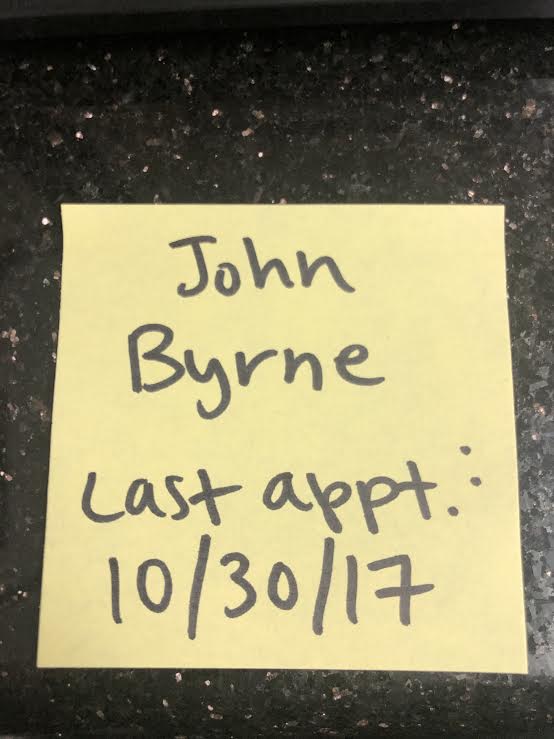 John
Byrne
Last appt.:
10/30/17